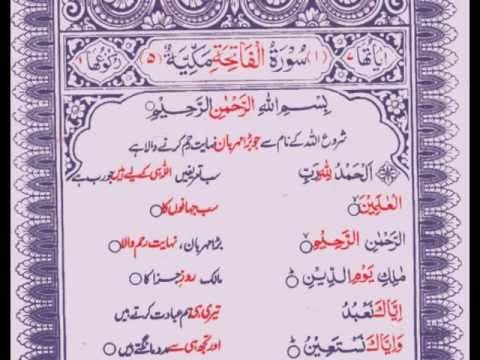 اٰيَاتُهَا ٧ (١) سُوْرَةُ الْفَاتِحَةِ مَكِّيَّةٌ (٥) رُكُوْعُهَا ١
بِسْمِ اللهِ الرَّحْمٰنِ الرَّحِيْمِ
شروع اللہ کے نام سے جو بڑا مہربان نہایت رحم کرنے والا ہے
اَلْحَمْدُ لِلّٰهِ رَبِّ سب تعریفیں اللہ ہی کے لیے ہیں جو رب ہے
الْعٰلَمِيْنَ سب جہانوں کا
الرَّحْمٰنِ الرَّحِيْمِ بڑا مہربان، نہایت رحم والا
مٰلِكِ يَوْمِ الدِّيْنِ مالک روز جزا کا
اِيَّاكَ نَعْبُدُ تیری ہی ہم عبادت کرتے ہیں
وَاِيَّاكَ نَسْتَعِيْنُ اور تجھ ہی سے مدد مانگتے ہیں